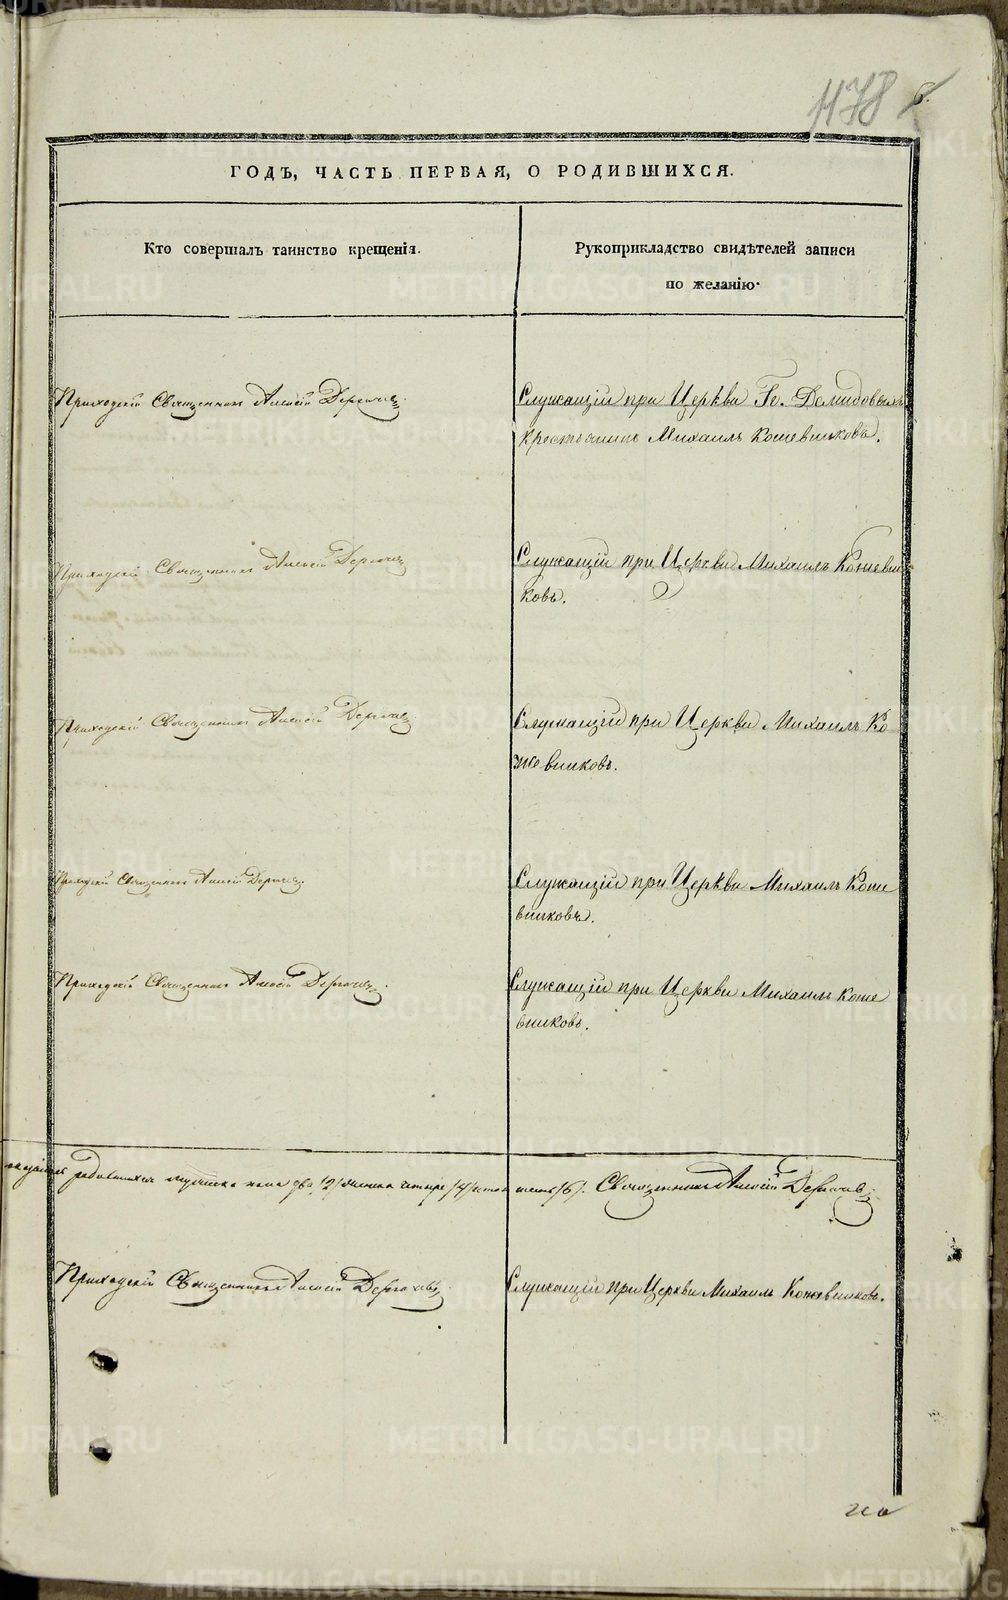 1178
6.
ГОДЪ, ЧАСТЬ ПЕРВАЯ, О РОДИВШИХСЯ.
Кто совершалъ таинство крещенія.
Рукоприкладство свидѣтелей записи
по желанію.
Приходскій Священникъ Алексій
Служащій при Церкви Г. Демидовыхъ
крестьянинъ Михаилъ Кожевниковъ.
Приходскій Священникъ Алексій
Служащій при Церкви Михаилъ Кожевни
ковъ.
Приходскій Священникъ Алексій
Служащій при Церкви Михаилъ Ко
жевниковъ.
Приходскій Священникъ Алексій
Служащій при Церкви Михаилъ Коже
вниковъ.
Приходскій Священникъ Алексій
Служащій при Церкви Михаилъ Коже
вниковъ.
родившихся мужеска пола два /2/ женска четыре /4/ итого шесть /6/. Священникъ Алексій
Приходскій Священникъ Алексій
Служащій при Церкви Михаилъ Кожевниковъ.
METRIKI.GASO-URAL.RU